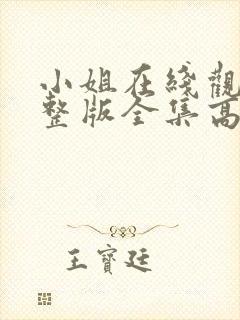 小姐在线觀
整版全集高
王寶廷